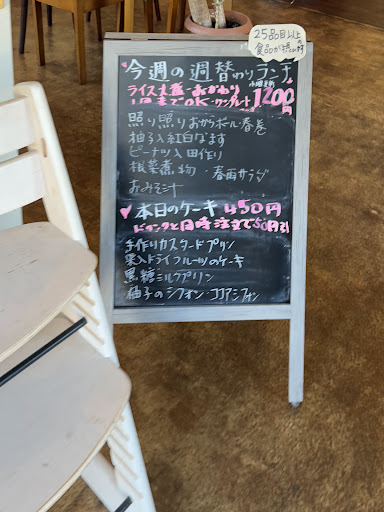 25品目以上の
食品が摂れます
今週の週替わりランチ
ライス大盛・おかわり
1回までOK・ワンプレート
1200円
照り照りおからボール春巻
柚子入紅白なます
ピーナツ入田作り
根菜煮物・春雨サラダ
おみそ汁
本日のケーキ 450円
ドリンクと同時注文で50円引
手作りカスタードプリン
栗入ドライフルーツのケーキ
黒糖ミルクプリン
柚子のシフォン・ココアシフォン